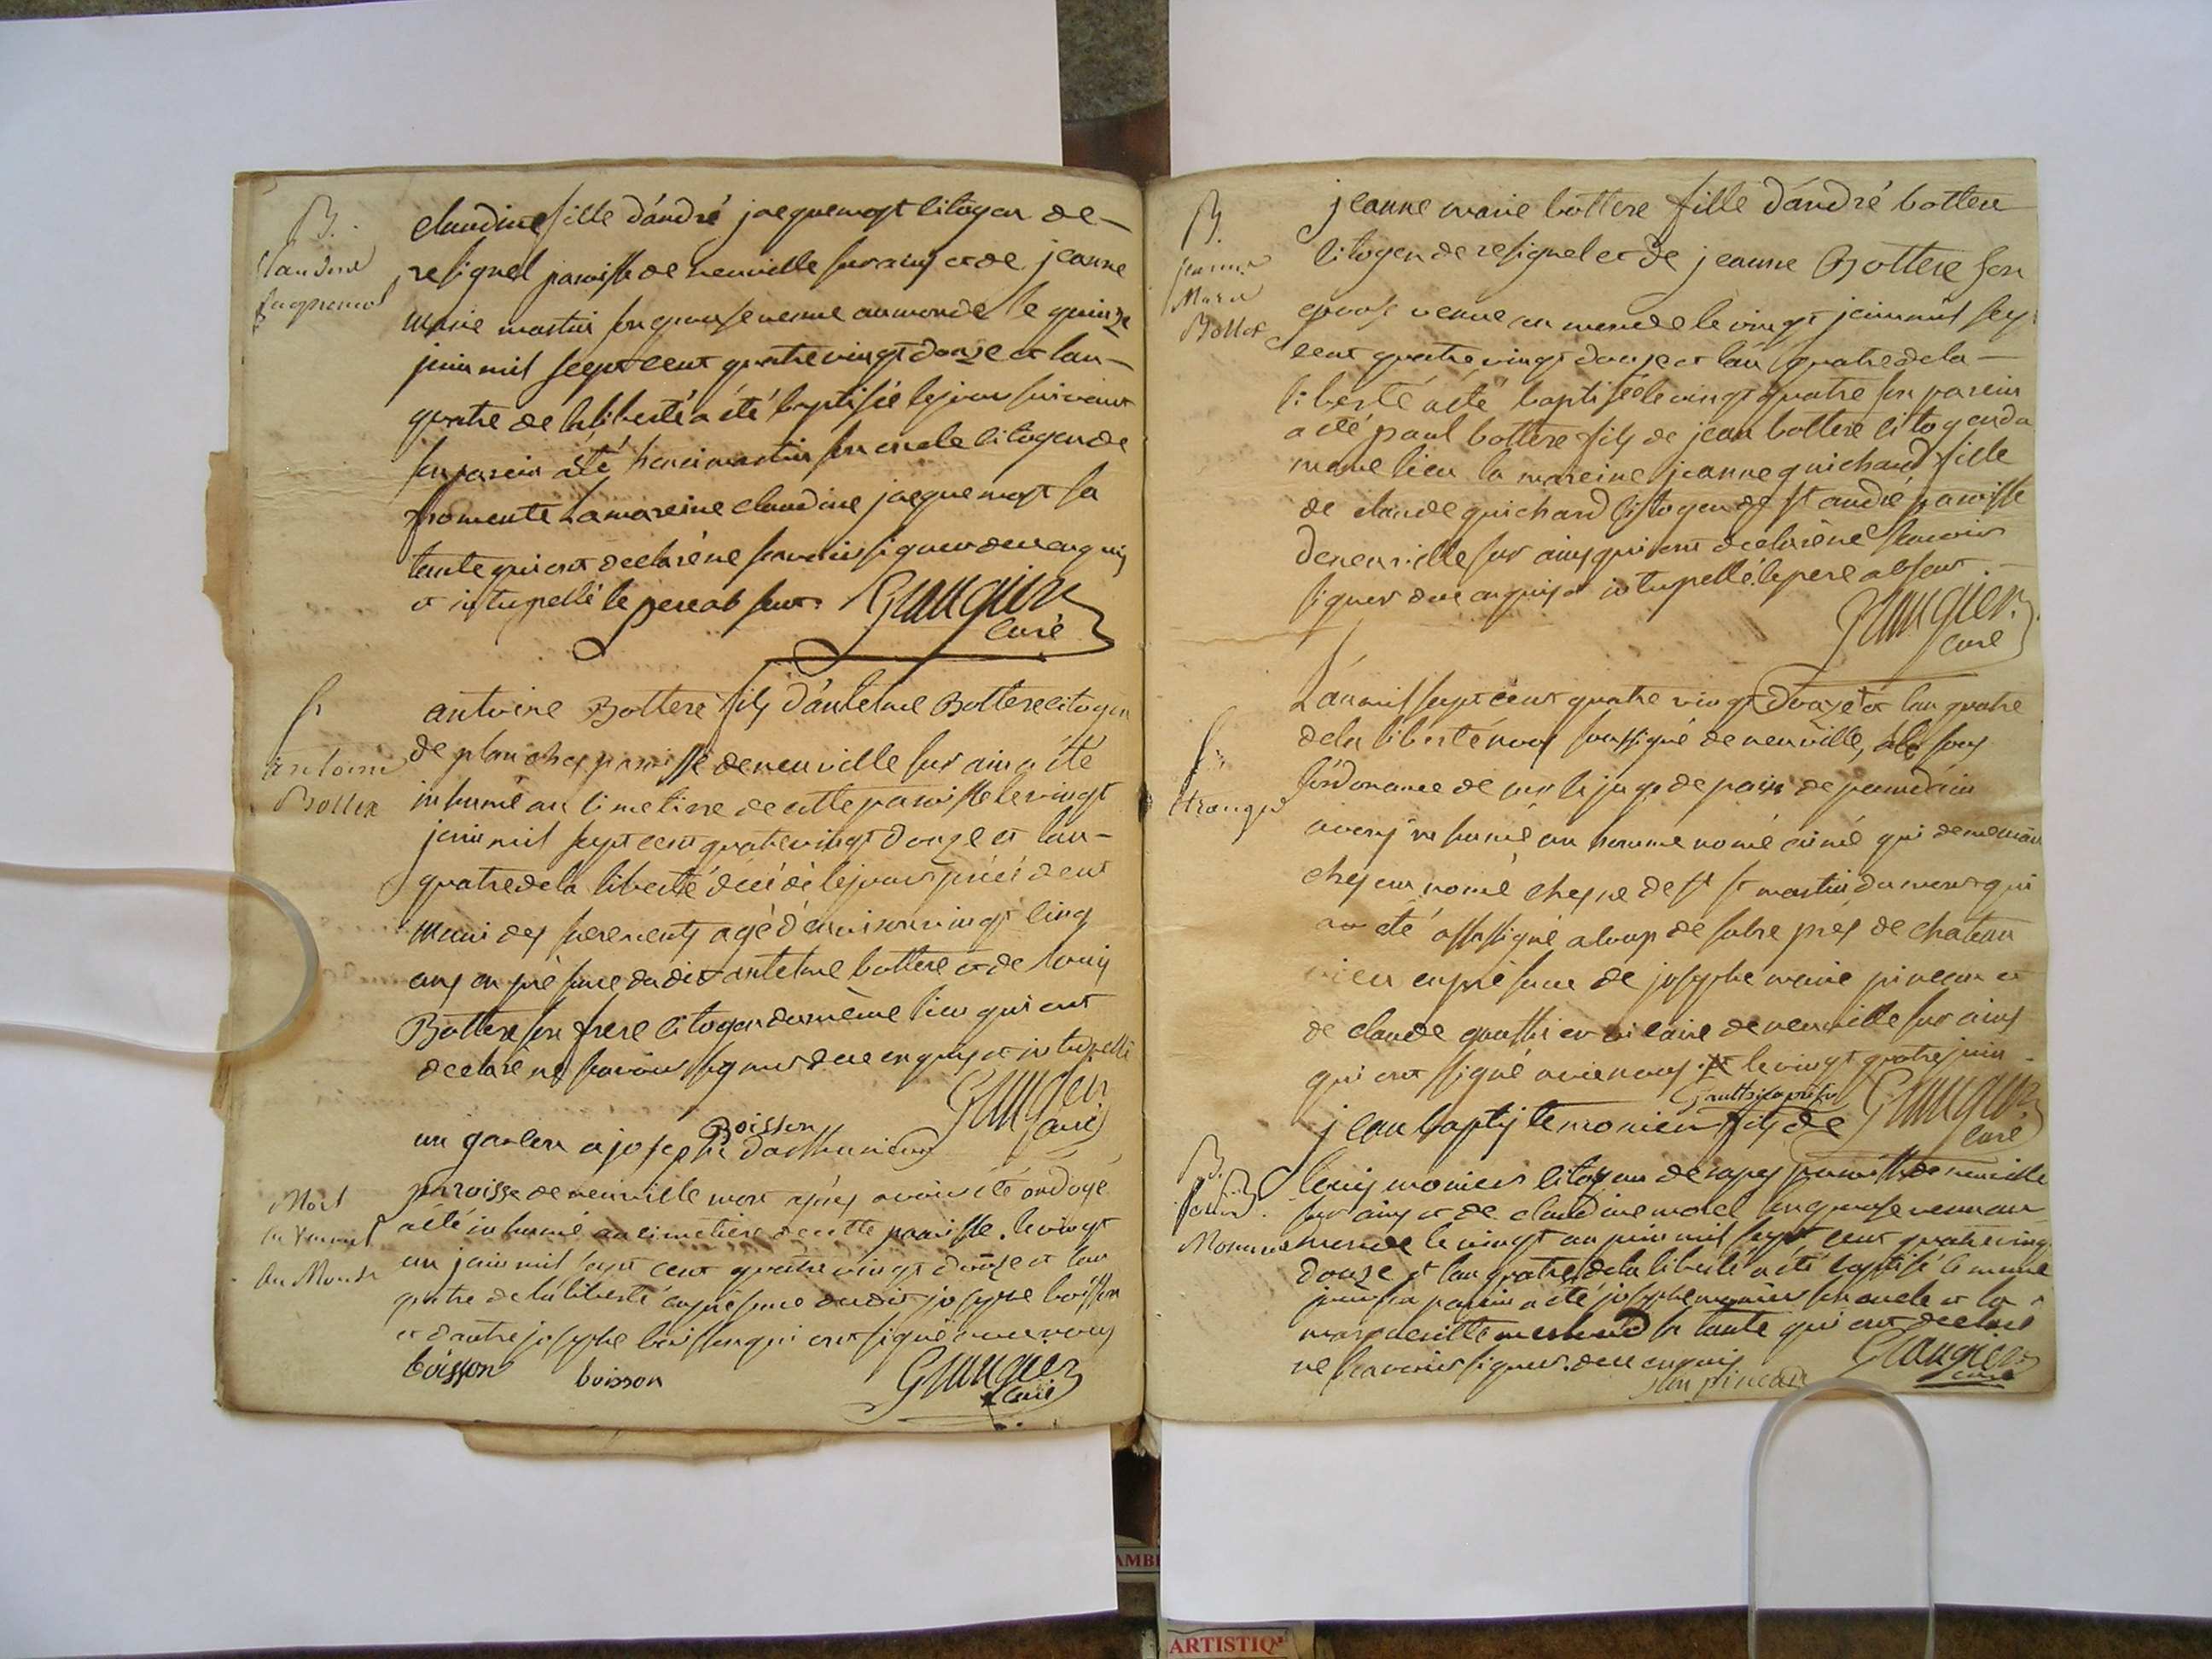 B.
Claudine
Jaquemot
claudine fille d'andré jacquemost citoyen de
resignel paroisse de neuville sur ains et de jeanne
marie martin son epouse venue au monde le quinze
juin mil sept cent quatre vingt douze et l'an
quatre de la liberté a été baptisée le jour suivant
son parein a été martin son oncle citoyen de
fromente la mareine claudine jacquemost sa
tante qui ont declaré ne savoir signer de ce enquis
et interpellé le pere absent. Grangier
curé
antoine
Bottex
antoine Bottere fils d'antelme Bottere citoyen
de planches paroisse de neuville sur ain a été
inhumé au cimetiere de cette paroisse le vingt
juin mil sept cent quatre vingt douze et l'an
quatre de la liberté décédé le jour précédent
muni des sacrements agé d'environ vingt cinq
ans en présence du dit antelme bottere et de louis
Bottere son frere citoyen du même lieu qui ont
declaré ne savoir signer de ce enquis et interpellé
Grangier
curé
Mort
en Venant
au Monde
un garcon a josephe Boisson
paroisse de neuville mort après avoir été ondoyé
a été inhumé au cimetiere de cette paroisse. le vingt
un juin mil sept cent quatre vingt douze et l'an
quatre de la liberté en présence du dit josephe boisson
et d'autre josephe boisson qui ont signé avec nous
boisson boisson Grangier
curé
B.
jeanne
Marie
Bottex
jeanne marie bottere fille d'andré bottere
citoyen de resignel et de jeanne Bottere son
epouse venue au monde le vingt juin mil sept
cent quatre vingt douze et l'an quatre de la
liberté a été baptisée le vingt quatre son parein
a été paul bottere fils de jean bottere citoyen du
meme lieu la mareine jeanne guichard fille
de claude guichard citoyen de st andré paroisse
de neuville sur ains qui ont declaré ne savoir
signer de ce enquis et interpellé. le pere absent
Grangier
curé
etranger
L'an mil sept cent quatre vingt douze et l'an quatre
de la liberté nous soussigné de neuville, sous
l'ordonance de mr le juge de paix de pont d'ain
avons inhumé un homme nomé aimé qui demeuroit
chez un nomé chesne de st martin du mont qui
a été assassigné a coup de sabre près de chateau
vieu en présence de josephe marie pineau et
de claude gauthier vicaire de neuville sur ains
qui ont signé avec nous. le vingt quatre juin
Grangier
curé
B.
Monnier
jean baptiste monier fils de
louis monier citoyen de paroisse de neuville
sur ains et de claudine morel son epouse venu au
monde le vingt un juin mil sept cent quatre vingt
douze et l'an quatre de la liberté a été baptisé le meme
jour son parein a été josephe monier son oncle et la
tante qui ont declaré
ne savoir signer. de ce enquis Grangier
curé
ARTISTIQ